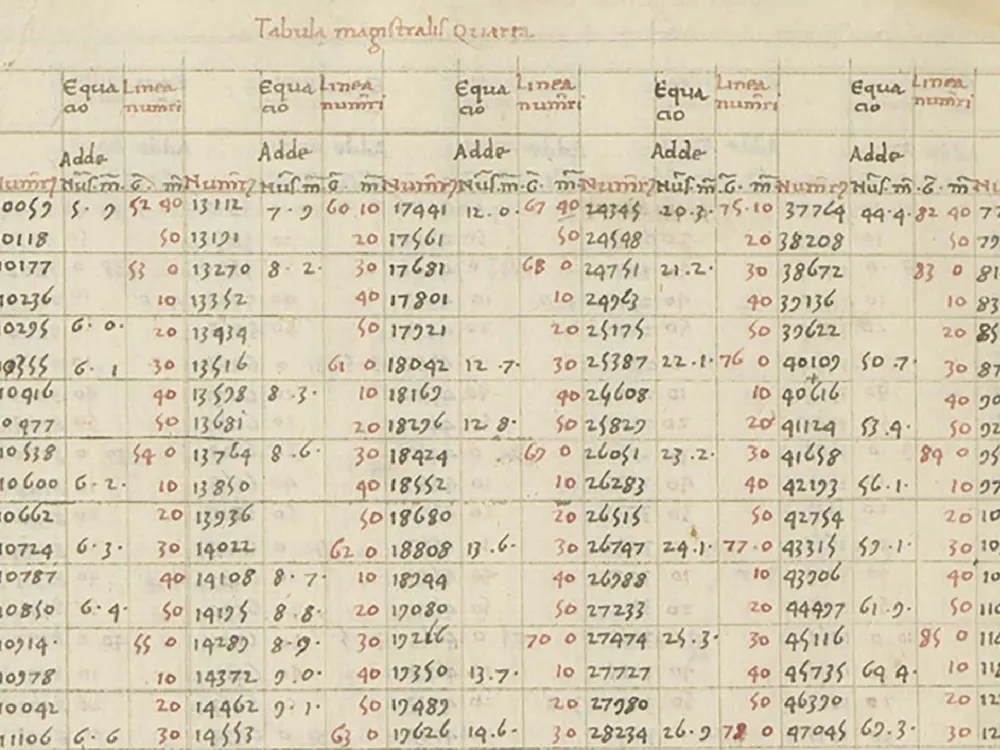 Tabula magistralis Quarta
Equa Linea Equa Linea Equa Linea Equa Linea Equa Linea
cio num̄ri cio num̄ri cio num̄ri cio num̄ri cio num̄ri
Adde Adde Adde Adde Adde
0059 5·9 52 40 13112 7·9 60 10 17441 12·0· 67 40 24345 20·3· 75·10 37764 44·4· 82 40
0118 50 13191 20 17561 50 24548 20 38208 50
0177 53 0 13270 8·2· 30 17681 68 0 24751 21·2· 30 38672 83 0
0236 10 13352 40 17801 10 24963 40 39136 10
0295 6·0· 20 13434 50 17921 20 25175 50 39622 20
0355 6·1 30 13516 61 0 18042 12·7· 30 25387 22·1· 76 0 40109 50·7· 30
0416 40 13598 8·3· 10 18169 40 25608 10 40616 40
0477 50 13681 20 18296 12 8· 50 25829 20 41124 53·4· 50
0538 54 0 13764 8·6· 30 18424 69 0 26051 23·2· 30 41658 84 0
0600 6·2· 10 13850 40 18552 10 26283 40 42193 56·1· 10
0662 20 13936 50 18680 20 26515 50 42754 20
0724 6·3· 30 14022 62 0 18808 13·6· 30 26747 24·1· 77·0 43315 59·1· 30
0787 40 14108 8·7· 10 18944 40 26988 10 43906 40
0850 6·4· 50 14195 8·8· 20 19080 50 27233 20 44497 61·9· 50
0914 55 0 14289 8·9· 30 19216 70 0 27474 25·3· 30 45116 85 0
0978 10 14372 9·0· 40 19350 13·7· 10 27727 40 45735 64 4· 10
0042 20 14462 9·1· 50 19489 20 27980 50 46390 20
1106 6·6 30 14553 63 0 19626 14·6· 30 28234 26·9 78 0 47045 69·3· 30